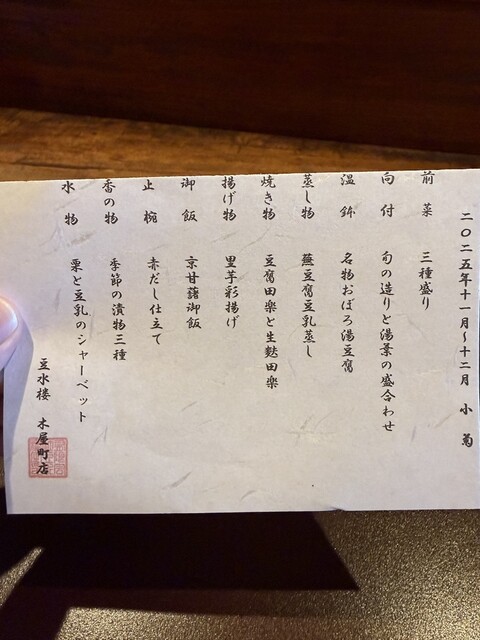 二〇二五年十一月～十二月 小菊
前菜 三種盛り
向付 旬の造りと湯葉の盛合わせ
温鉢 名物おぼろ湯豆腐
蒸し物 蕪豆腐豆乳蒸し
焼き物 豆腐田楽と生麩田楽
揚げ物 里芋彩揚げ
御飯 京甘藷御飯
止椀 赤だし仕立て
香の物 季節の漬物三種
水物 栗と豆乳のシャーベット
豆水楼 木屋町店